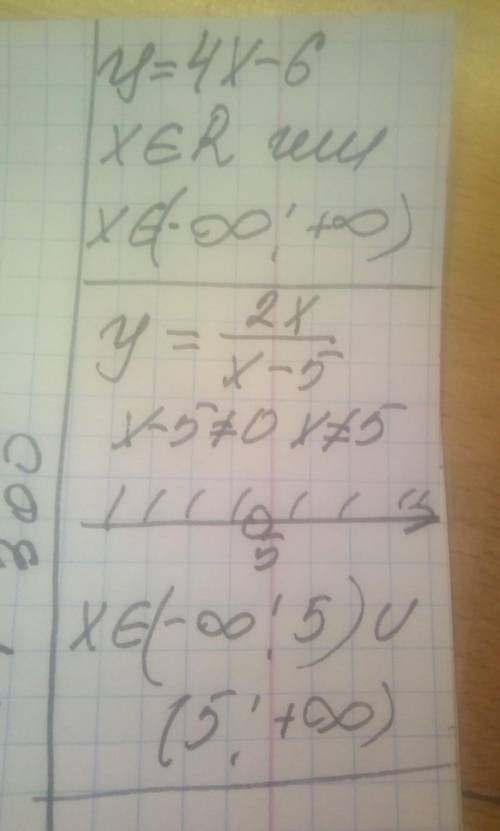 y=4x-6
x∈R или
x∈(-∞; +∞)
y = 2x/(x-5)
x-5≠0 x≠5
5
x∈(-∞; 5) ∪
(5; +∞)
300